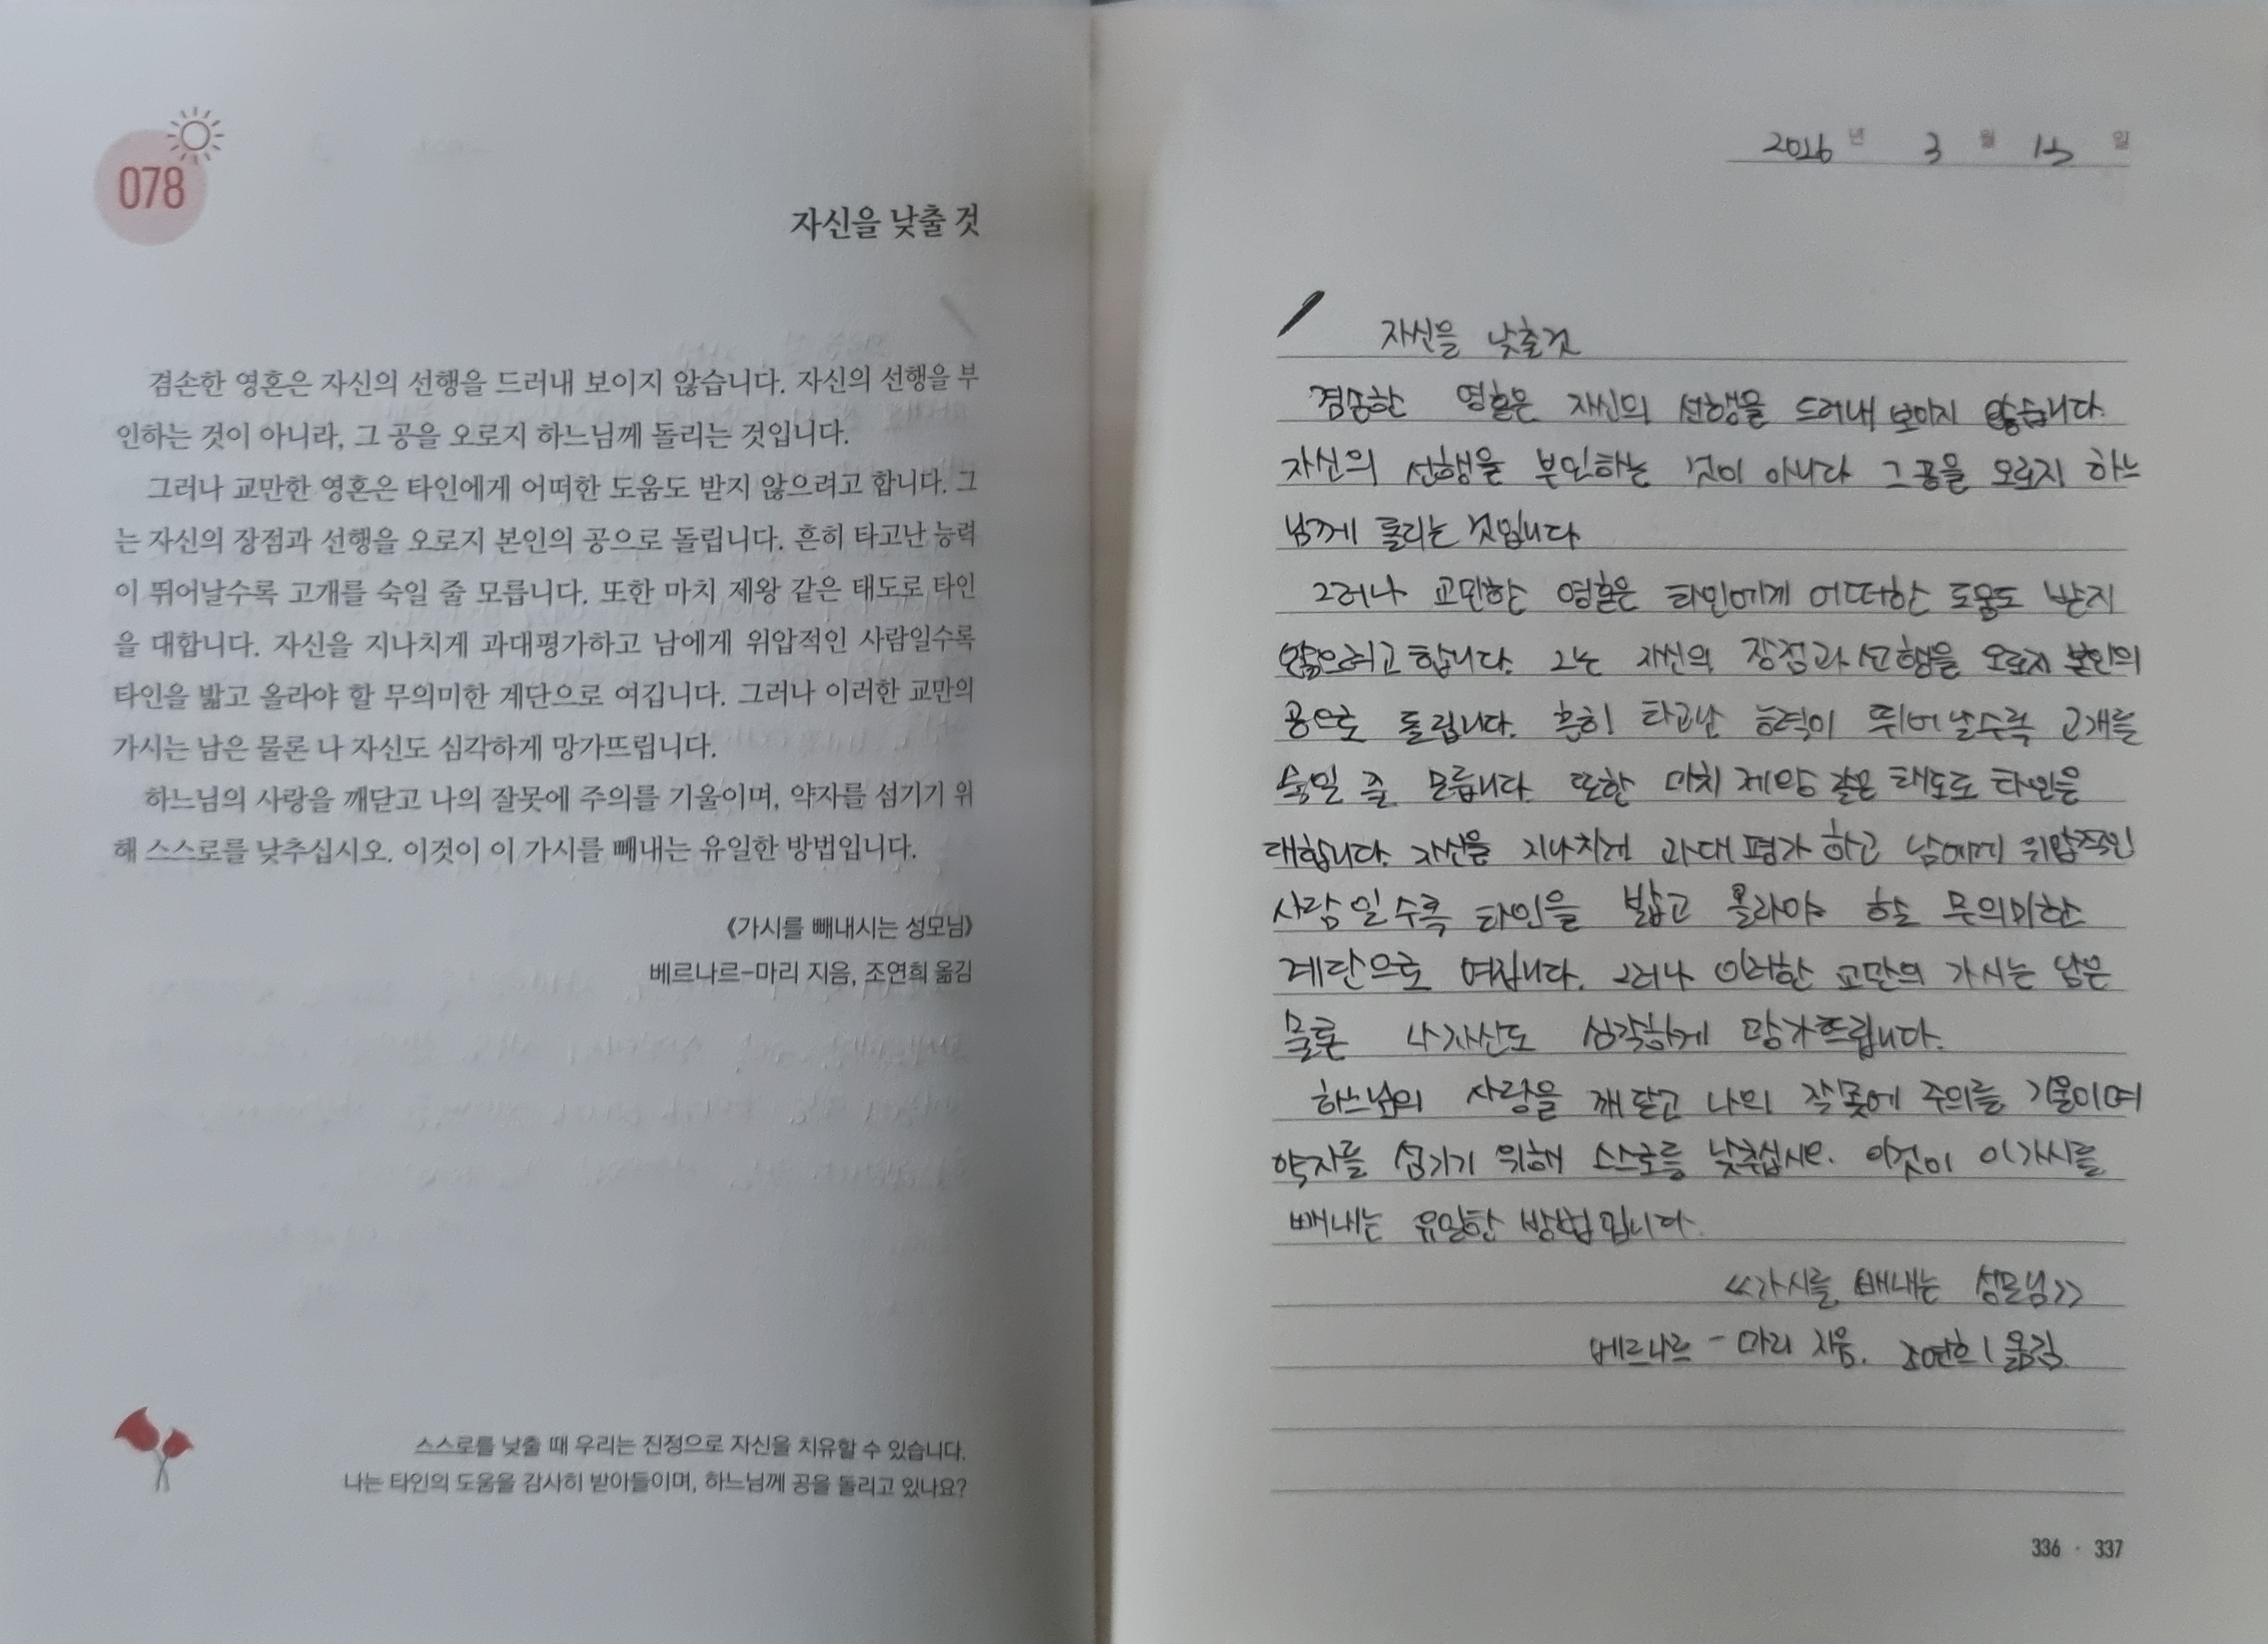 078
자신을 낮출 것
겸손한 영혼은 자신의 선행을 드러내 보이지 않습니다. 자신의 선행을 부
인하는 것이 아니라, 그 공을 오로지 하느님께 돌리는 것입니다.
그러나 교만한 영혼은 타인에게 어떠한 도움도 받지 않으려고 합니다. 그
는 자신의 장점과 선행을 오로지 본인의 공으로 돌립니다. 흔히 타고난 능력
이 뛰어날수록 고개를 숙일 줄 모릅니다. 또한 마치 제왕 같은 태도로 타인
을 대합니다. 자신을 지나치게 과대평가하고 남에게 위압적인 사람일수록
타인을 밟고 올라야 할 무의미한 계단으로 여깁니다. 그러나 이러한 교만의
가시는 남은 물론 나 자신도 심각하게 망가뜨립니다.
하느님의 사랑을 깨닫고 나의 잘못에 주의를 기울이며, 약자를 섬기기 위
해 스스로를 낮추십시오. 이것이 이 가시를 빼내는 유일한 방법입니다.
《가시를 빼내시는 성모님》
베르나르-마리 지음, 조연희 옮김
스스로를 낮출 때 우리는 진정으로 자신을 치유할 수 있습니다.
나는 타인의 도움을 감사히 받아들이며, 하느님께 공을 돌리고 있나요?
년 3 월 15 일
자신을 낮출것
겸손한 영혼은 자신의 선행을 드러내 보이지 않습니다.
자신의 선행을 부인하는 것이 아니다 그 공을 오로지 하느
님께 돌리는 것입니다
그러나 교만한 영혼은 타인에게 어떠한 도움도 받지
않으려고 합니다. 그는 자신의 장점과 선행을 오로지 본인의
공으로 돌립니다. 흔히 타고난 능력이 뛰어날수록 고개를
숙일 줄 모릅니다. 또한 마치 제왕 같은 태도로 타인을
대합니다. 자신을 지나치게 과대평가 하고 남에게 위압적인
사람일수록 타인을 밟고 올라야 할 무의미한
계단으로 여깁니다. 그러나 이러한 교만의 가시는 남은
물론 나 자신도 심각하게 망가뜨립니다.
하느님의 사랑을 깨닫고 나의 잘못에 주의를 기울이며
약자를 섬기기 위해 스스로를 낮추십시오. 이것이 이 가시를
빼내는 유일한 방법입니다.
<<가시를 빼내는 성모님>>
베르나르 - 마리 지음. 조연희 옮김
336 · 337